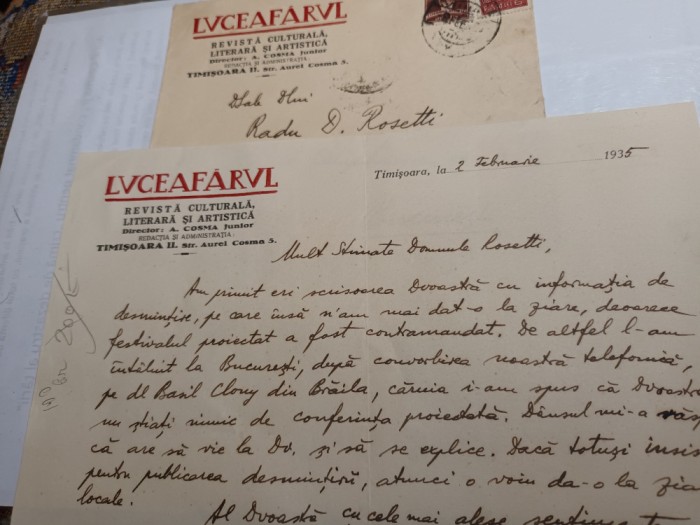 LVCEAFĂRVL
REVISTĂ CULTURALĂ,
LITERARĂ ȘI ARTISTICĂ
Director: A. COSMA Junior
REDACȚIA ȘI ADMINISTRAȚIA:
TIMIȘOARA II. Str. Aurel Cosma 3.
DSale Dlui
Radu D. Rosetti
LVCEAFĂRVL
REVISTĂ CULTURALĂ,
LITERARĂ ȘI ARTISTICĂ
Director: A. COSMA Junior
REDACȚIA ȘI ADMINISTRAȚIA:
TIMIȘOARA II. Str. Aurel Cosma 3.
Timișoara, la 2 Februarie 1935
Mult Stimate Domnule Rosetti,
Am primit eri scrisoarea Dvoastră cu informația de
desmințire, pe care însă n'am mai dat-o la ziare, deoarece
festivalul proiectat a fost contramandat. De altfel l-am
întâlnit la București, după convorbirea noastră telefonică,
pe dl Basil Clony din Brăila, căruia i-am spus că Dvoastră
nu știați nimic de conferința proiectată. Dânsul mi-a răs
că are să vie la Dv. și să se explice. Dacă totuși insis
pentru publicarea desmințirii, atunci o voiu da-o la zia
locale.
Al Dvoastră cu cele mai alese